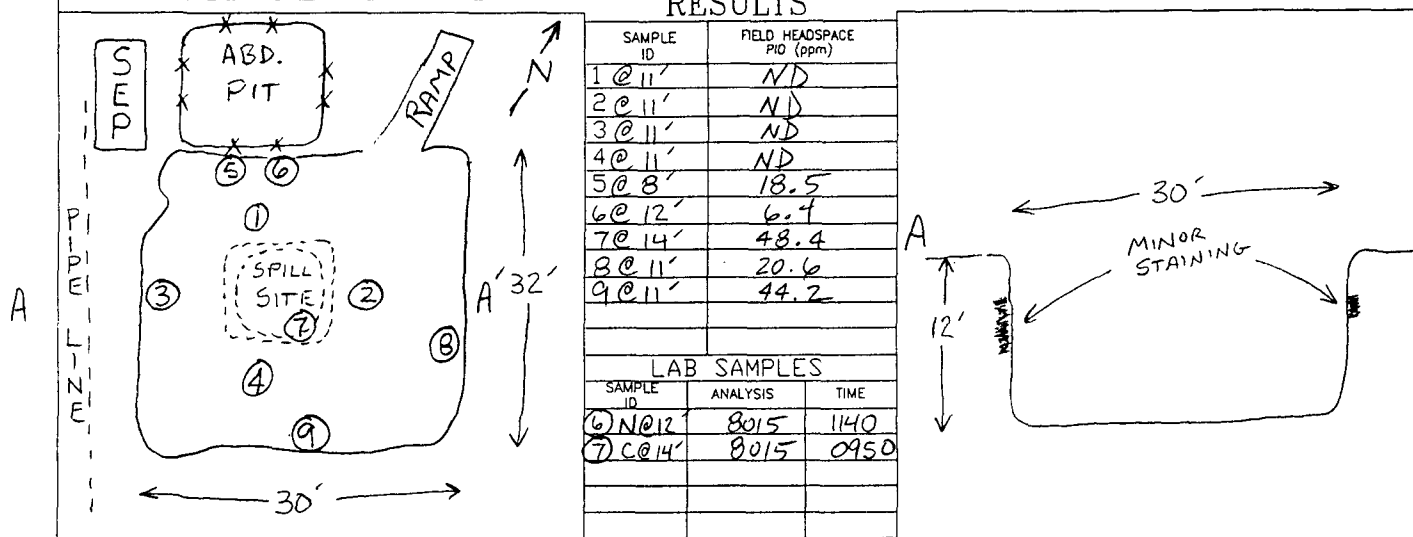 SEP
ABD.
PIT
RAMP
N
PIPE LINE
A
A'
5
6
1
SPILL
SITE
3
2
7
8
4
9
32'
30'
RESULTS
SAMPLE ID FIELD HEADSPACE PID (ppm)
1 @ 11' ND
2 @ 11' ND
3 @ 11' ND
4 @ 11' ND
5 @ 8' 18.5
6 @ 12'
7 @ 14' 48.4
8 @ 11' 20.6
9 @ 11' 44.2
LAB SAMPLES
SAMPLE ID ANALYSIS TIME
6 N@12' 8015 1140
7 C@14' 8015 0950
A
30'
MINOR
STAINING
12'